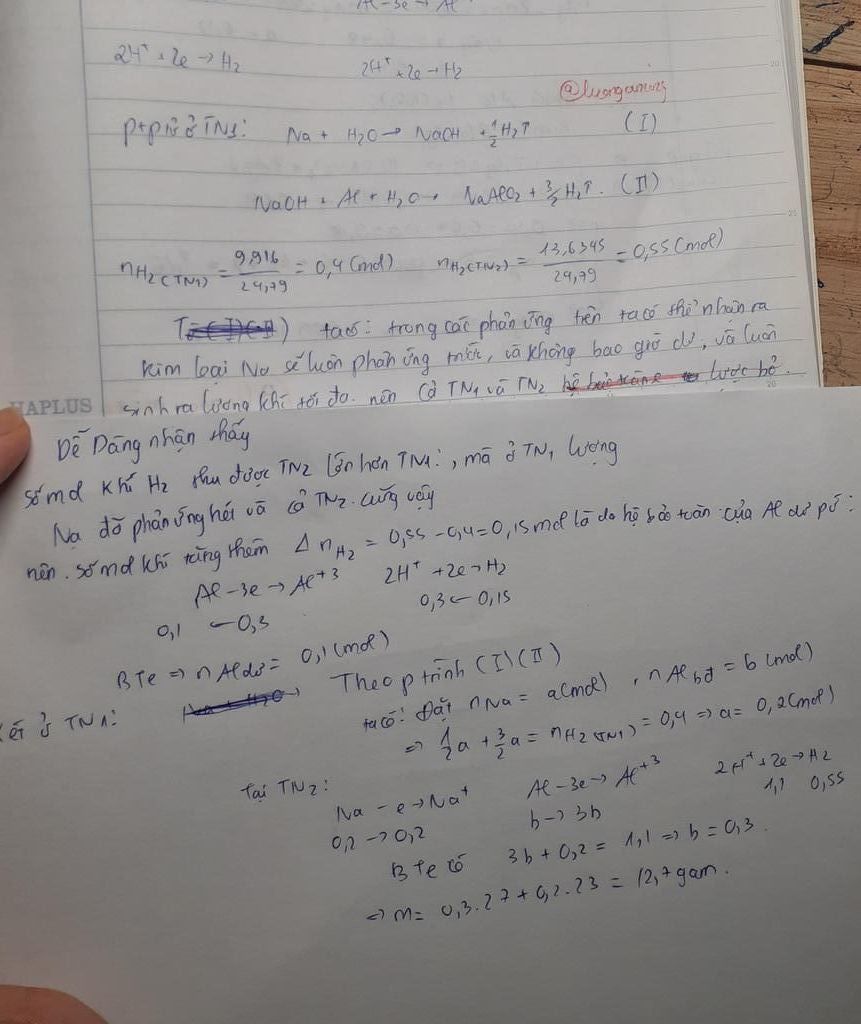 Al - 3e → Al
2H⁺ + 2e → H₂ 2H⁺ + 2e → H₂
@luongan
p+pứ ở TN1: Na + H₂O → NaOH + ½H₂↑ (I)
NaOH + Al + H₂O → NaAlO₂ + 3/2 H₂↑. (II)
nH₂(TN1) = 9,916/24,79 = 0,4 (mol) nH₂(TN2) = 13,6345/24,79 = 0,55 (mol)
ta có: trong các phản ứng trên ta có thể nhận ra
kim loại Na sẽ luôn phản ứng trước, và không bao giờ dư, và luôn
HAPLUS sinh ra lượng khí tối đa. nên cả TN1 và TN2 lược bỏ.
Dễ Dàng nhận thấy
số mol khí H₂ thu được TN2 lớn hơn TN1:, mà ở TN1 lượng
Na đã phản ứng hết và cả TN2 cũng vậy
nên. số mol khí tăng thêm Δ nH₂ = 0,55 - 0,4 = 0,15 mol là do hệ bảo toàn của Al dư pứ:
Al - 3e → Al⁺³ 2H⁺ + 2e → H₂
0,1 ← 0,3 0,3 ← 0,15
BTe ⇒ n Al dư = 0,1 (mol)
Xét ở TN1: Theo ptrình (I)(II)
ta có: Đặt nNa = a (mol), nAl bđ = b (mol)
⇒ ½a + 3/2a = nH₂(TN1) = 0,4 ⇒ a = 0,2 (mol)
Tại TN2:
Na - e → Na⁺ Al - 3e → Al⁺³ 2H⁺ + 2e → H₂
0,2 → 0,2 b → 3b 1,1 0,55
BTe có 3b + 0,2 = 1,1 ⇒ b = 0,3.
⇒ m = 0,3.27 + 0,2.23 = 12,7 gam.